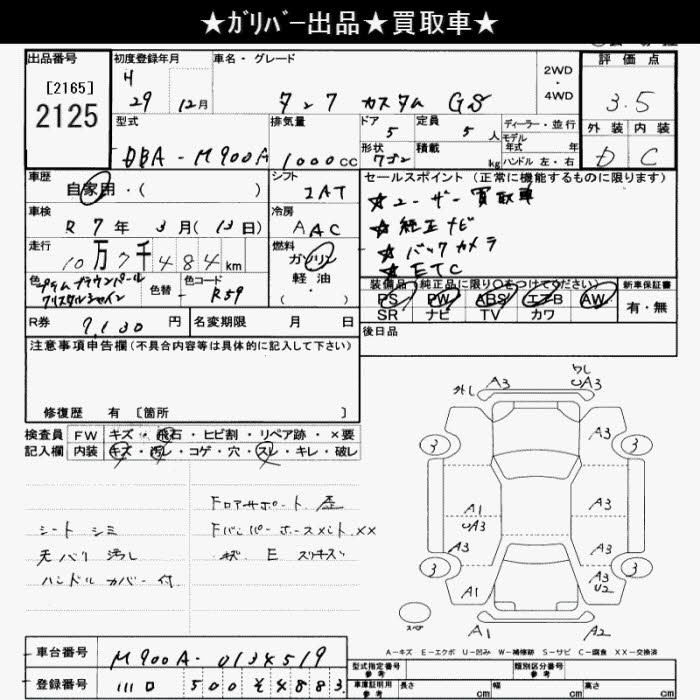 ★ｶﾞﾘﾊﾞｰ出品★買取車★
出品番号
[2165]
2125
初度登録年月
H
29 12月
車名・グレード
タンク カスタム GS
2WD
・
4WD
評価点
3.5
外装 内装
D C
型式
DBA-M900A
排気量
1000cc
ドア
5
定員
5人
ディーラー・並行
モデル
年式 年
形状
ワゴン
積載
kg
ハンドル 左・右
車歴
自家用・( )
シフト
IAT
セールスポイント(正常に機能するものに限ります)
★ユーザー買取車
★純正ナビ
★バックカメラ
★ETC
車検
R7年3月(13日)
冷房
AAC
走行
10万7千484km
燃料
ガソリン
軽油
・( )
色
プラムブラウンパール
クリスタルシャイン
色替
色コード
R59
装備品(純正品に限り○をつけてください)
PS PW ABS エアB AW
SR ナビ TV カワ
新車保証書
有・無
R券
9,130円
名変期限 月 日
後日品
注意事項申告欄(不具合内容等は具体的に記入して下さい)
修復歴 有 〔箇所 〕
検査員
記入欄
FW キズ・飛石・ヒビ割・リペア跡・×要
内装 キズ・汚レ・コゲ・穴・スレ・キレ・破レ
シート シミ
天バリ 汚レ
ハンドル カバー 付
Fロアサポート 歪
Fバンパーホースメント XX
キズ E スリキズ
外し A3
ワレ
UA3
3
A3
3
A1
UA3
A3
A3
A3
3
A1
A3
U2
3
スペア
A1
A2
A-キズ E-エクボ U-凹み W-補修跡 S-サビ C-腐食 XX-交換済
車台番号
M900A-0134519
登録番号
500 そ 4883
型式指定番号
参考
類別区分番号
参考
車庫証明用
参考
長さ cm
幅 cm
高さ cm